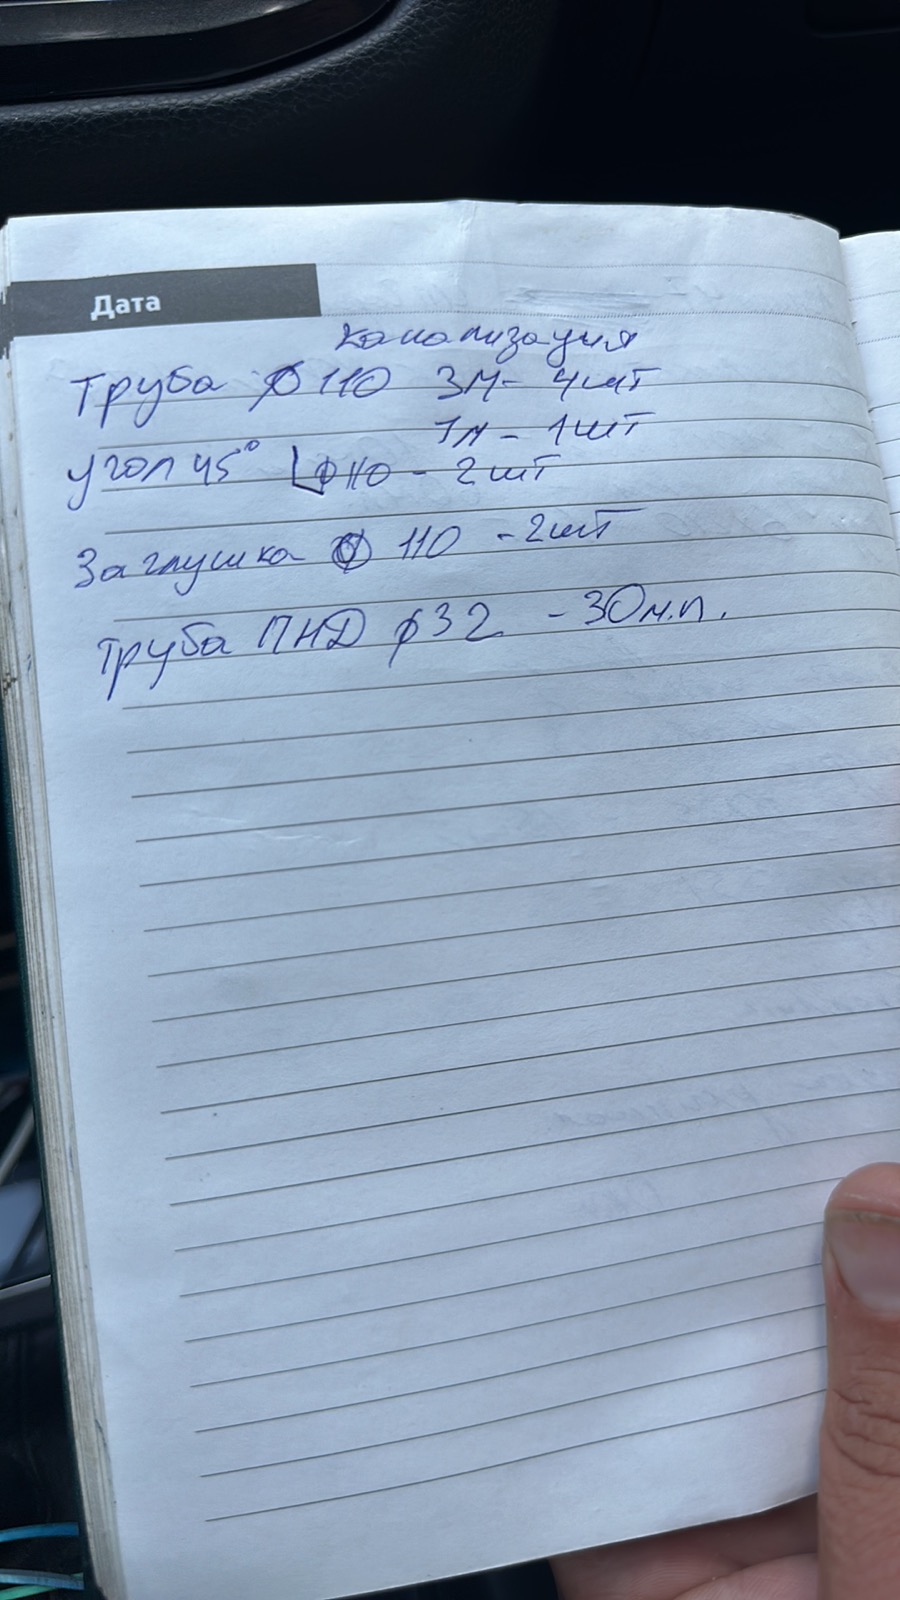 Дата
Канализация
Труба ∅ 110 3м - 4шт
1м - 1шт
угол 45° ∅110 - 2шт
Заглушка ∅ 110 - 2шт
Труба ПНД ∅32 - 30м.п.